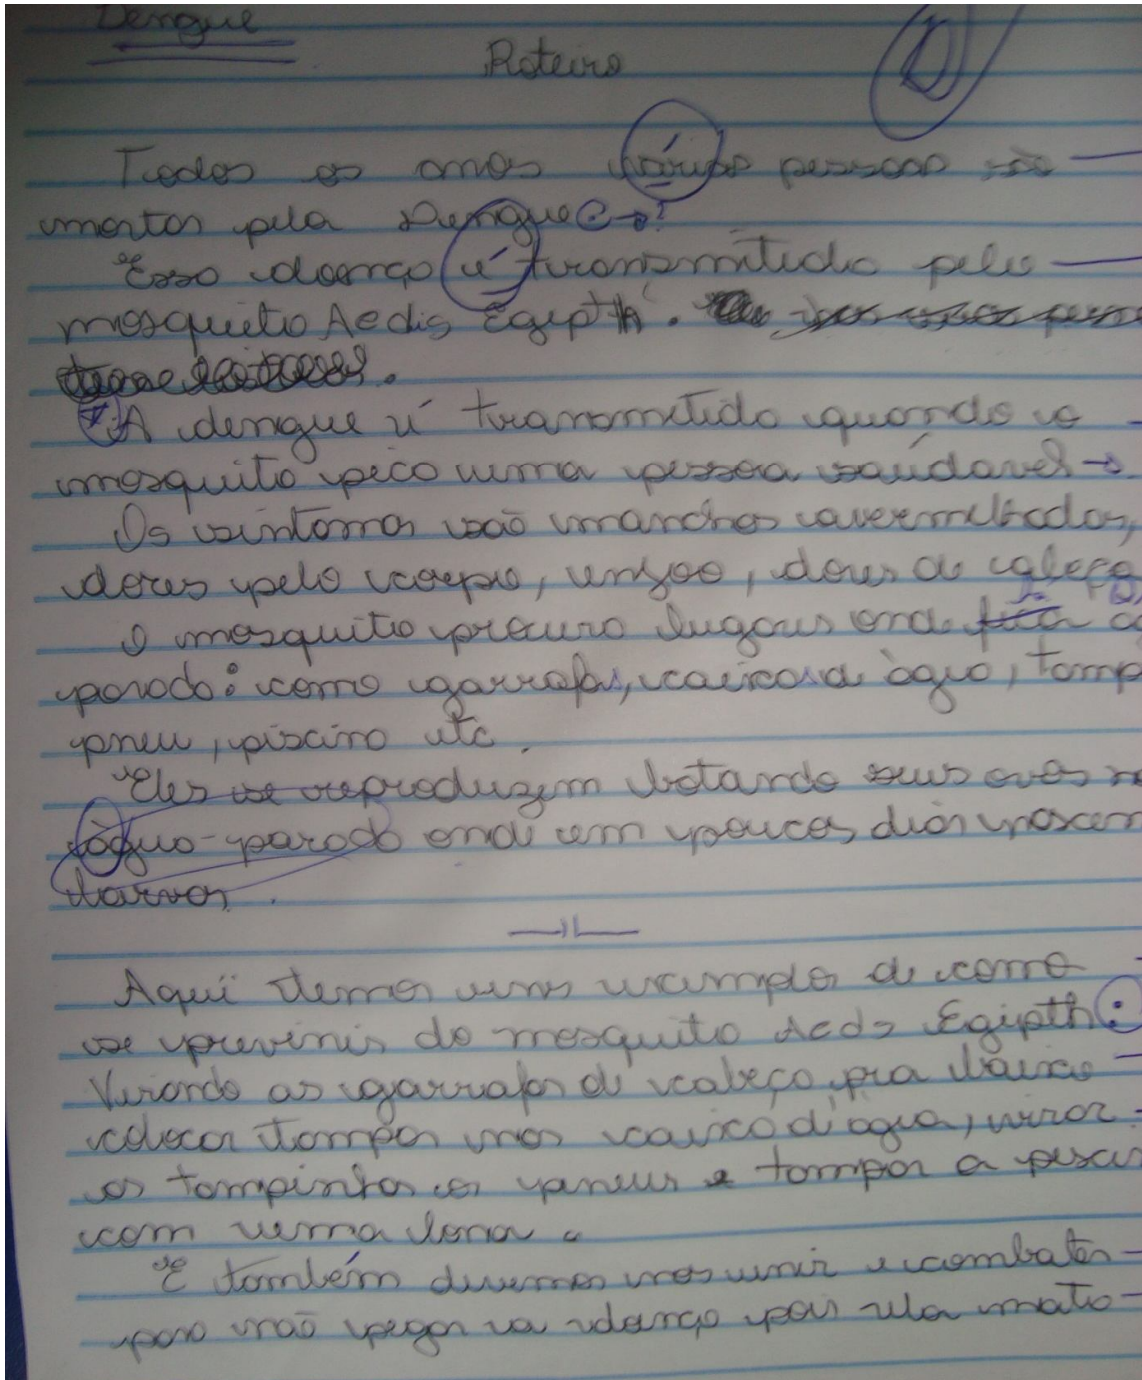 Dengue
Roteiro
Todos os anos várias pessoas são
mortas pela Dengue
Essa doença é transmitida pelo
mosquito Aedis Egipth.
A dengue é transmitida quando o
mosquito pica uma pessoa saúdavel
Os sintomas são manchas avermelhadas,
dores pelo corpo, enjoo, dores de cabeça
O mosquito procura lugares onde
parada: como garrafas, caixas d àgua, tamp
pneu, piscina etc.
Eles se reproduzem botando seus ovos n
àgua-parada onde em poucos dias nascem
larvas.
Aqui temos uns exemplos de como
se previnir do mosquito Aeds Egipth:
Virando as garrafas de cabeça pra baixo
colocar tampas nas caixa d'àgua, virar
as tampinhas os pneus e tampar a pisci
com uma lona.
E também devemos nos unir e combater
para não pegar a doença pois ela mata